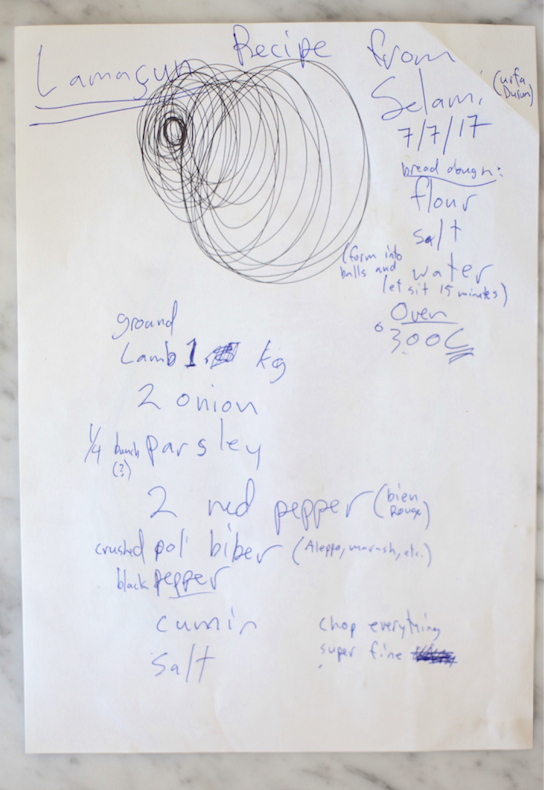 Lamaçun Recipe from
Selami (urfa
Durum)
7/7/17
bread dough:
flour
salt
water
(form into
balls and
let sit 15 minutes)
Oven
300C
ground
Lamb 1 kg
2 onion
1/4 bunch parsley
(?)
2 red pepper (bien
Rouge)
crushed pol biber (Aleppo, marash, etc.)
black pepper
cumin
salt
chop everything
super fine